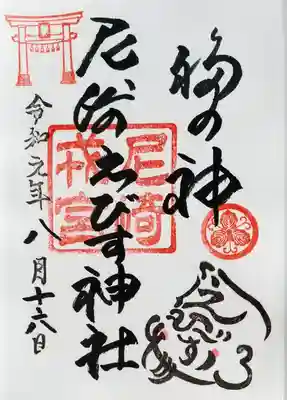 福の神
尼崎えびす神社
尼崎
戎宮
令和元年八月十六日
えびす